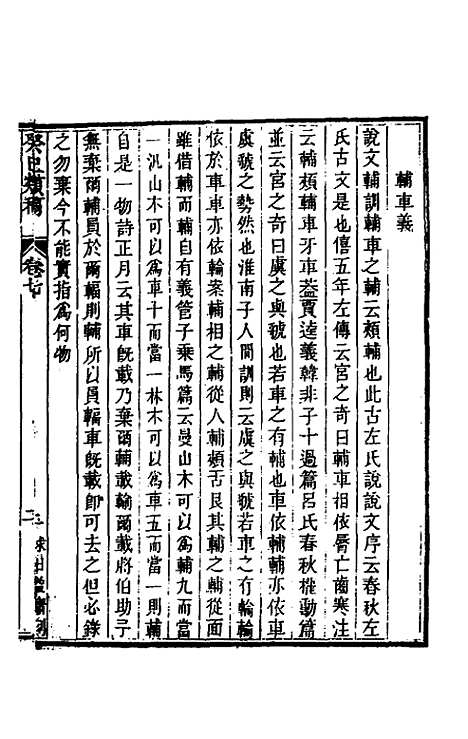 輔車義
說文輔訓輔車之輔云頰輔也此古左氏說說文序云春秋左
氏古文是也僖五年左傳云宮之奇曰輔車相依脣亡齒寒注
云輔頰輔車牙車葢賈逵義韓非子十過篇呂氏春秋權動篇
並云宮之奇曰虞之與虢也若車之有輔也車依輔輔亦依車
虞虢之勢然也淮南子人間訓則云虞之與虢若車之有輪輪
依於車車亦依輪案輔相之輔從人輔頰舌艮其輔之輔從面
雖借輔而輔自有義管子乘馬篇云曼山木可以爲輔九而當
一汎山木可以爲車十而當一林木可以爲車五而當一則輔
自是一物詩正月云其車旣載乃棄爾輔載輸爾載將伯助予
無棄爾輔員於爾輻則輔所以員輻車旣載卽可去之但必錄
之勿棄今不能實指爲何物
癸巳類稿
卷七